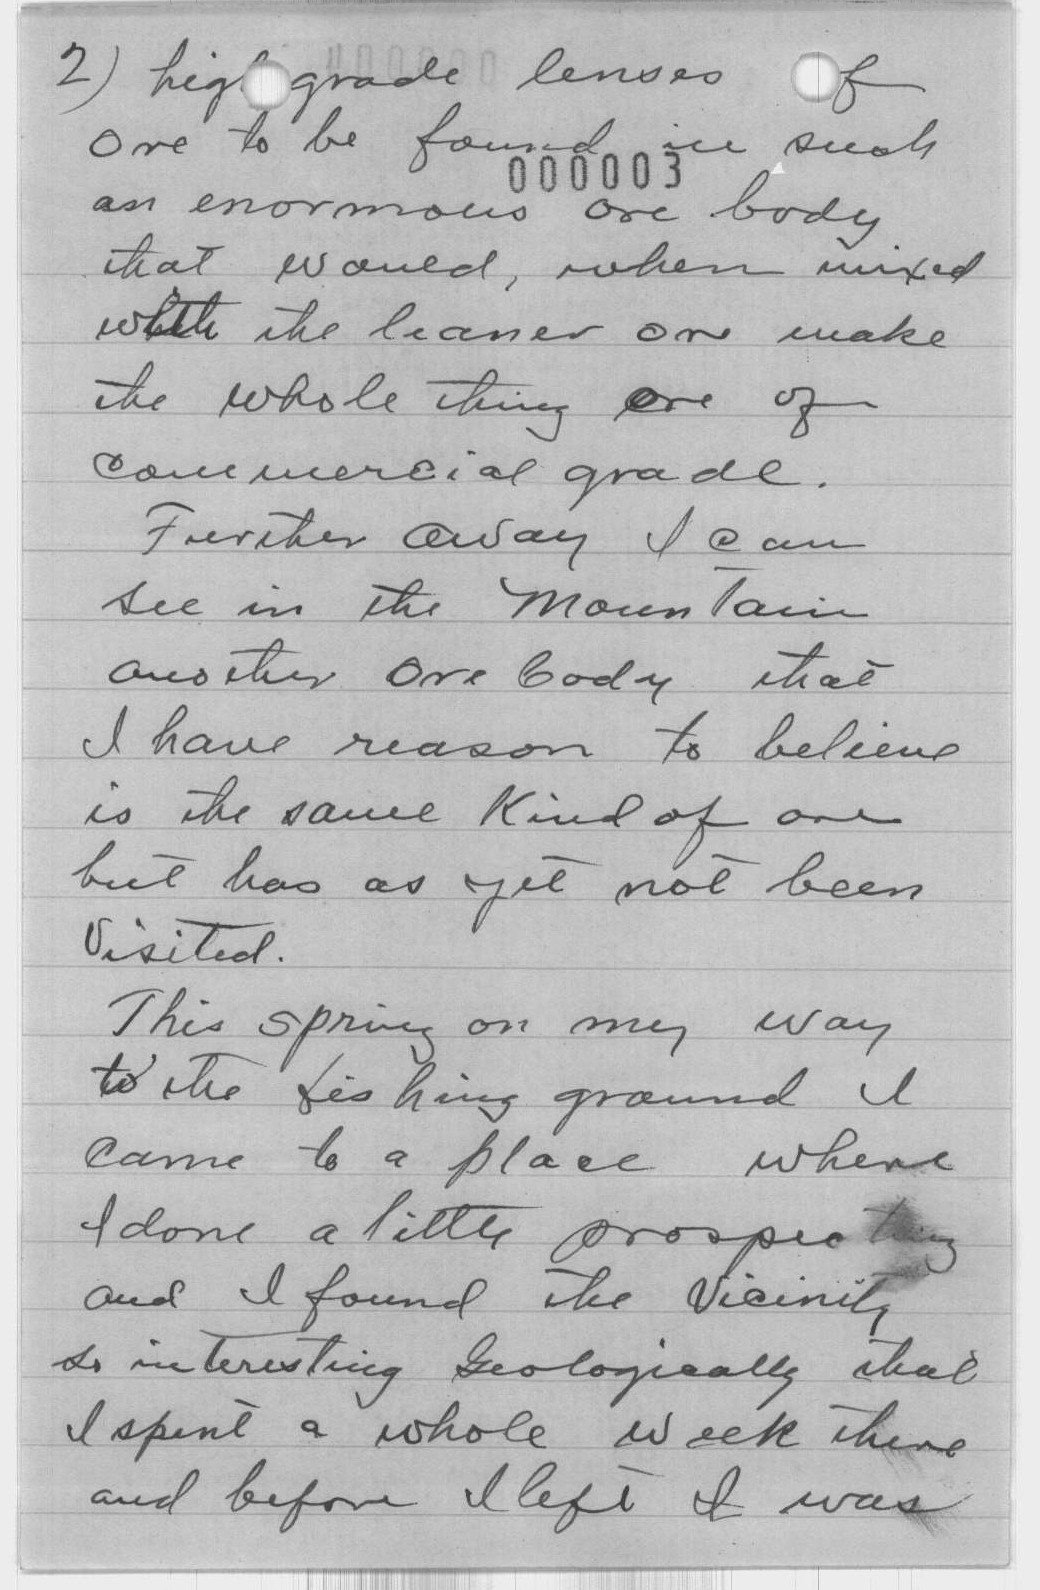 2) high grade lenses of
ore to be found in such
000003
an enormous ore body
that would, when mixed
with the leaner ore make
the whole thing ore of
commercial grade.
Further away I can
see in the Mountain
another ore body that
I have reason to believe
is the same Kind of ore
but has as yet not been
Visited.
This spring on my way
to the fishing ground I
came to a place where
I done a little prospecting
and I found the Vicinity
so interesting Geologically that
I spent a whole week there
and before I left I was